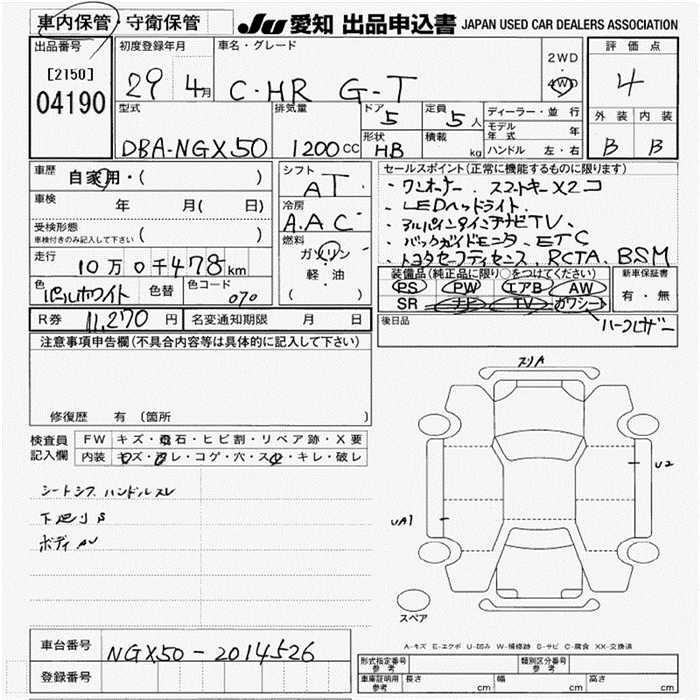 車内保管・守衛保管 JU 愛知 出品申込書 JAPAN USED CAR DEALERS ASSOCIATION
出品番号 初度登録年月 車名・グレード 2WD 評価点
[2150] 29 4月 C-HR G-T ・ 4
04190 4WD
型式 排気量 ドア 定員 ディーラー・並行 外装 内装
DBA-NGX50 1200CC 5 5人 モデル年式 年 B B
形状 積載
HB kg ハンドル 左・右
車歴 自家用・( ) シフト AT セールスポイント(正常に機能するものに限ります)
車検 年 月( 日) 冷房 ・ワンオーナー、スマートキーX2コ
受検形態 ( ) A.A.C ・LEDヘッドライト、
車検付きのみ記入して下さい 燃料 ・アルパインタイプナビTV、
走行 10万0千478km ガソリン ・バックガイドモニタ、ETC
軽・油 ・トヨタセーフティセンス、RCTA、BSM
色 パールホワイト 色替 色コード 070 ( ) 装備品(純正品に限り○をつけてください) 新車保証書
PS PW エアB AW 有・無
SR ナビ TV カワシート
R券 11,270円 名変通知期限 月 日 後日品 ハーフレザー
注意事項申告欄(不具合内容等は具体的に記入して下さい)
修復歴 有 (箇所 )
検査員 FW キズ・飛石・ヒビ割・リペア跡・X要
記入欄 内装 キズ・スレ・コゲ・穴・スレ・キレ・破レ
シートシワ ハンドルスレ
下廻りS
ボディAU
スリA
U2
UA1
スペア
A-キズ E-エクボ U-凹み W-補修跡 S-サビ C-腐食 XX-交換済
車台番号 NGX50-2014526
登録番号
形式指定番号 参考 類別区分番号 参考
車庫証明用 参考 長さ cm 幅 cm 高さ cm